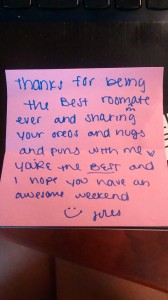 thanks for being
the best roommate
ever and sharing
your oreos and hugs
and puns with me
you're the BEST and
I hope you have an
awesome weekend